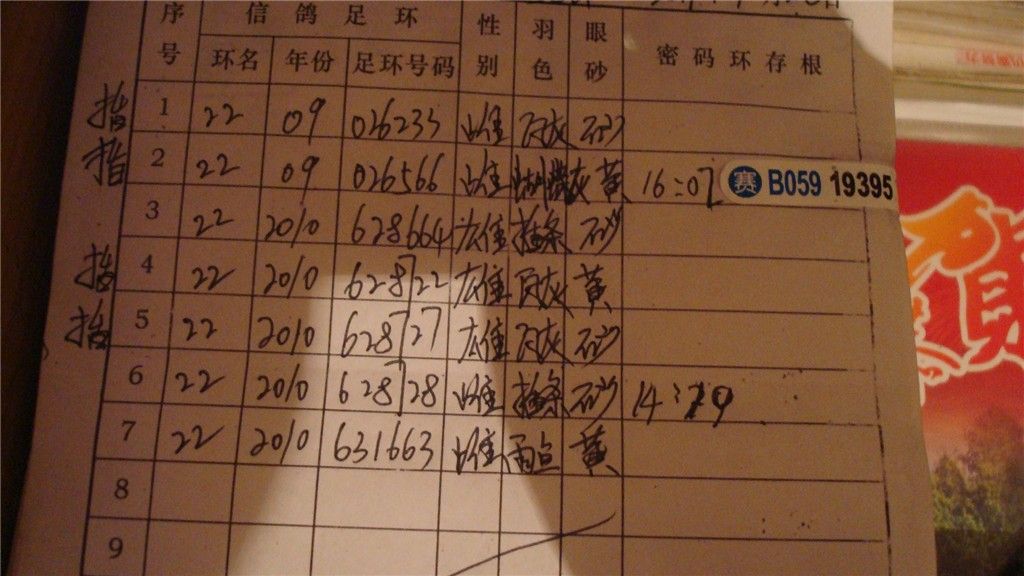 序号 信鸽足环 性别 羽色 眼砂 密码环存根
环名 年份 足环号码
指 1 22 09 026233 雌 灰 砂
指 2 22 09 026566 雌 灰 黄 16:07 赛 B059 19395
3 22 2010 628664 雄 条 砂
指 4 22 2010 628722 雄 灰 黄
指 5 22 2010 628727 雄 灰 砂
6 22 2010 628728 雌 条 砂 14:
7 22 2010 631663 雌 雨点 黄
8
9